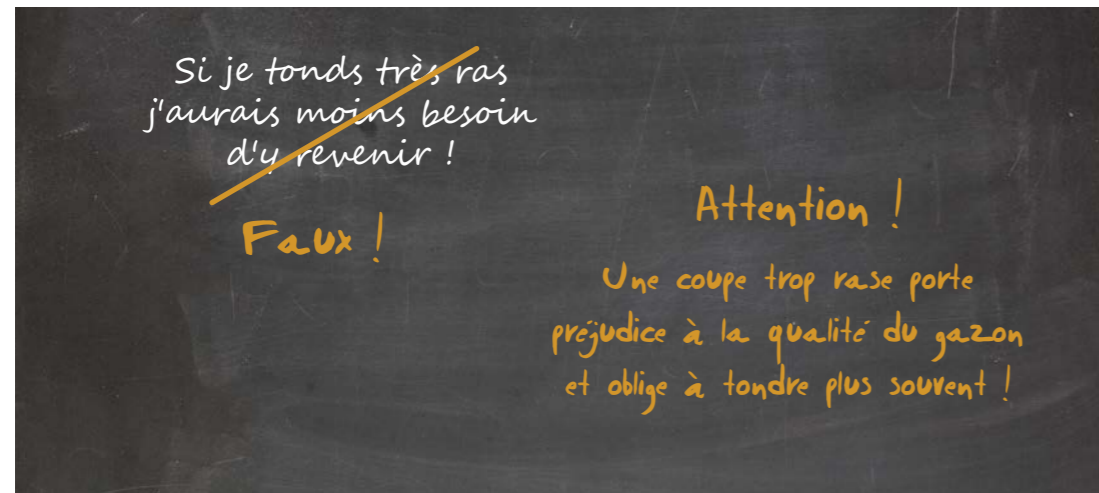 Si je tonds très ras
j'aurais moins besoin
d'y revenir !
Faux !
Attention !
Une coupe trop rase porte
préjudice à la qualité du gazon
et oblige à tondre plus souvent !